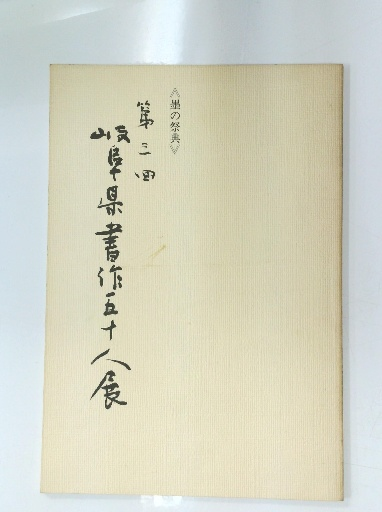 《墨の祭典》
第三回
岐阜県書作五十人展